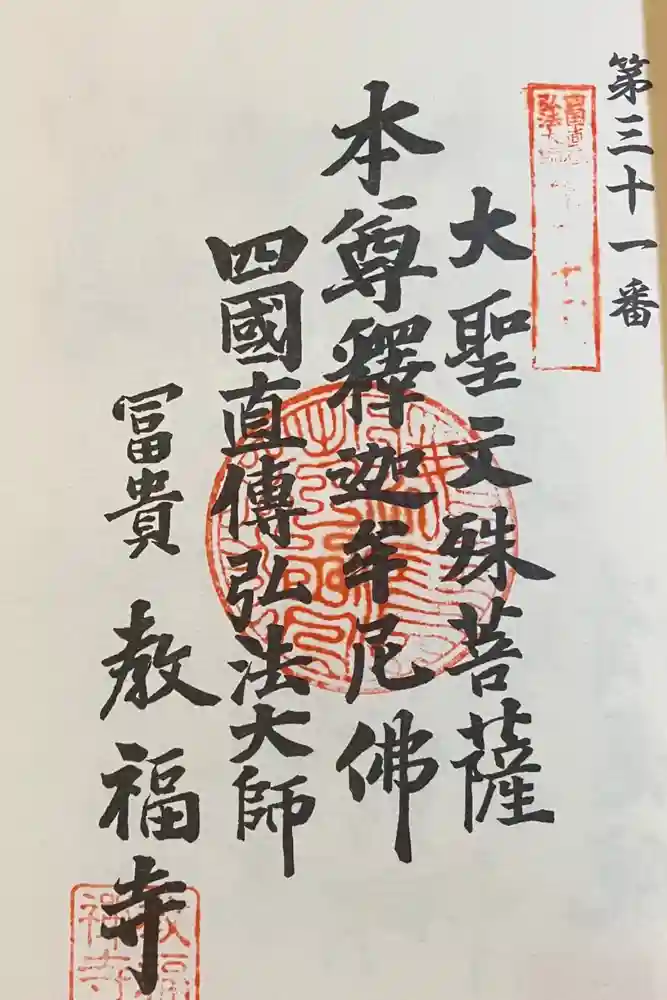 第三十一番
大聖文殊菩薩
本尊釋迦牟尼佛
四國直傳弘法大師
冨貴 教福寺